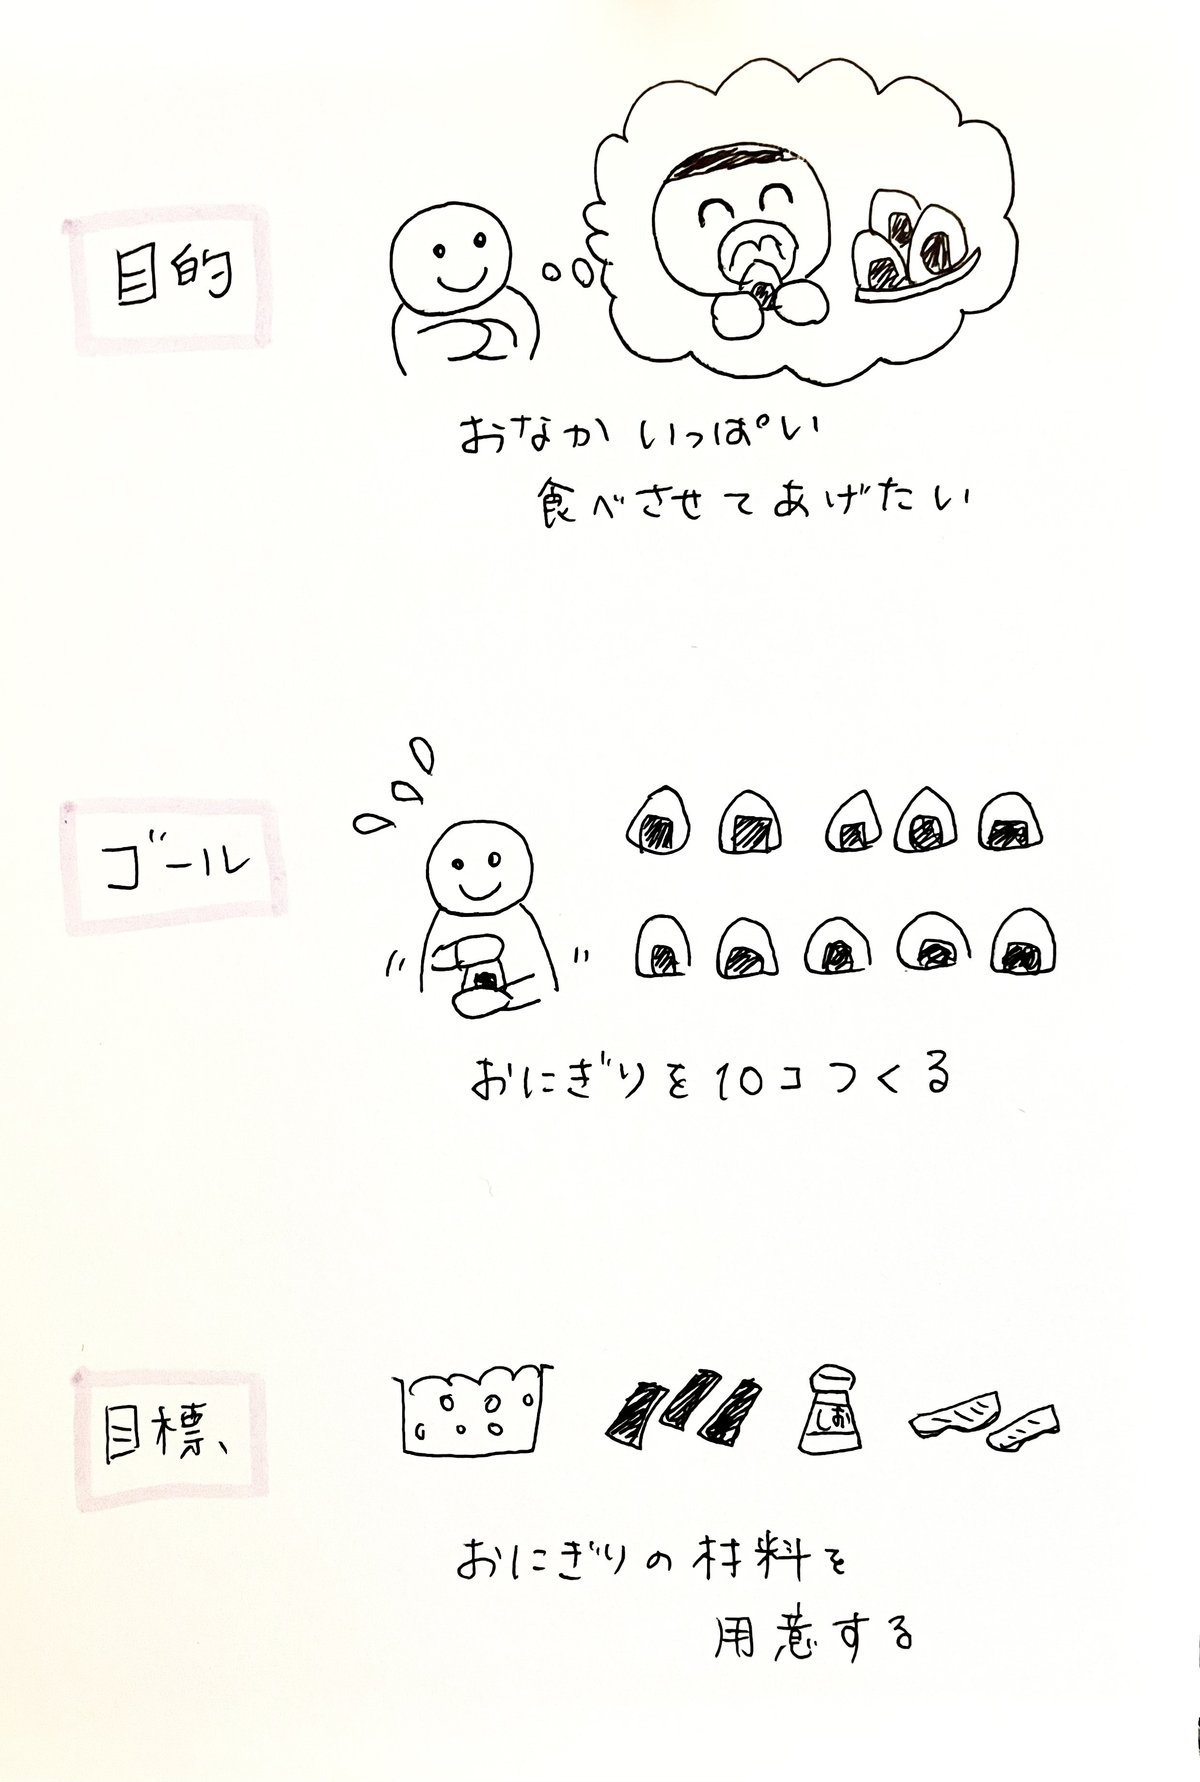 目的
おなかいっぱい
食べさせてあげたい
ゴール
おにぎりを10コつくる
目標
しお
おにぎりの材料を
用意する